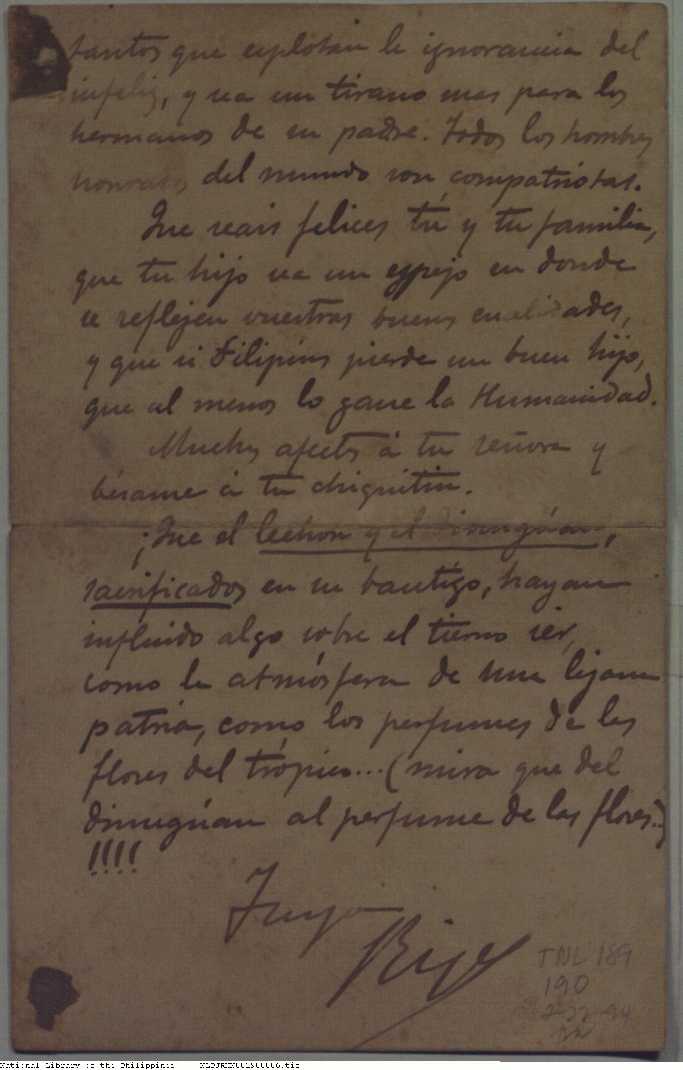 tantos que explotan la ignorancia del
infeliz, y sea un tirano mas para los
hermanos de su padre. Todos los hombres
honrados del mundo son compatriotas.
Que seais felices tú y tu familia,
que tu hijo sea un espejo en donde
se reflejen vuestras buenas cualidades,
y que si Filipinas pierde un buen hijo,
que al menos lo gane la Humanidad.
Muchos afectos á tu señora y
bésame á tu chiquitin.
¡Que el lechon y el dinugúan,
sacrificados en su bautizo, hayan
influido algo sobre el tierno sér,
como la atmósfera de una lejana
patria, como los perfumes de las
flores del trópico... (mira que del
dinugúan al perfume de las flores..)
!!!!
Tuyo
Rizal
TNL 189
190
National Library of the Philippines NLPJRMN001900006.tif